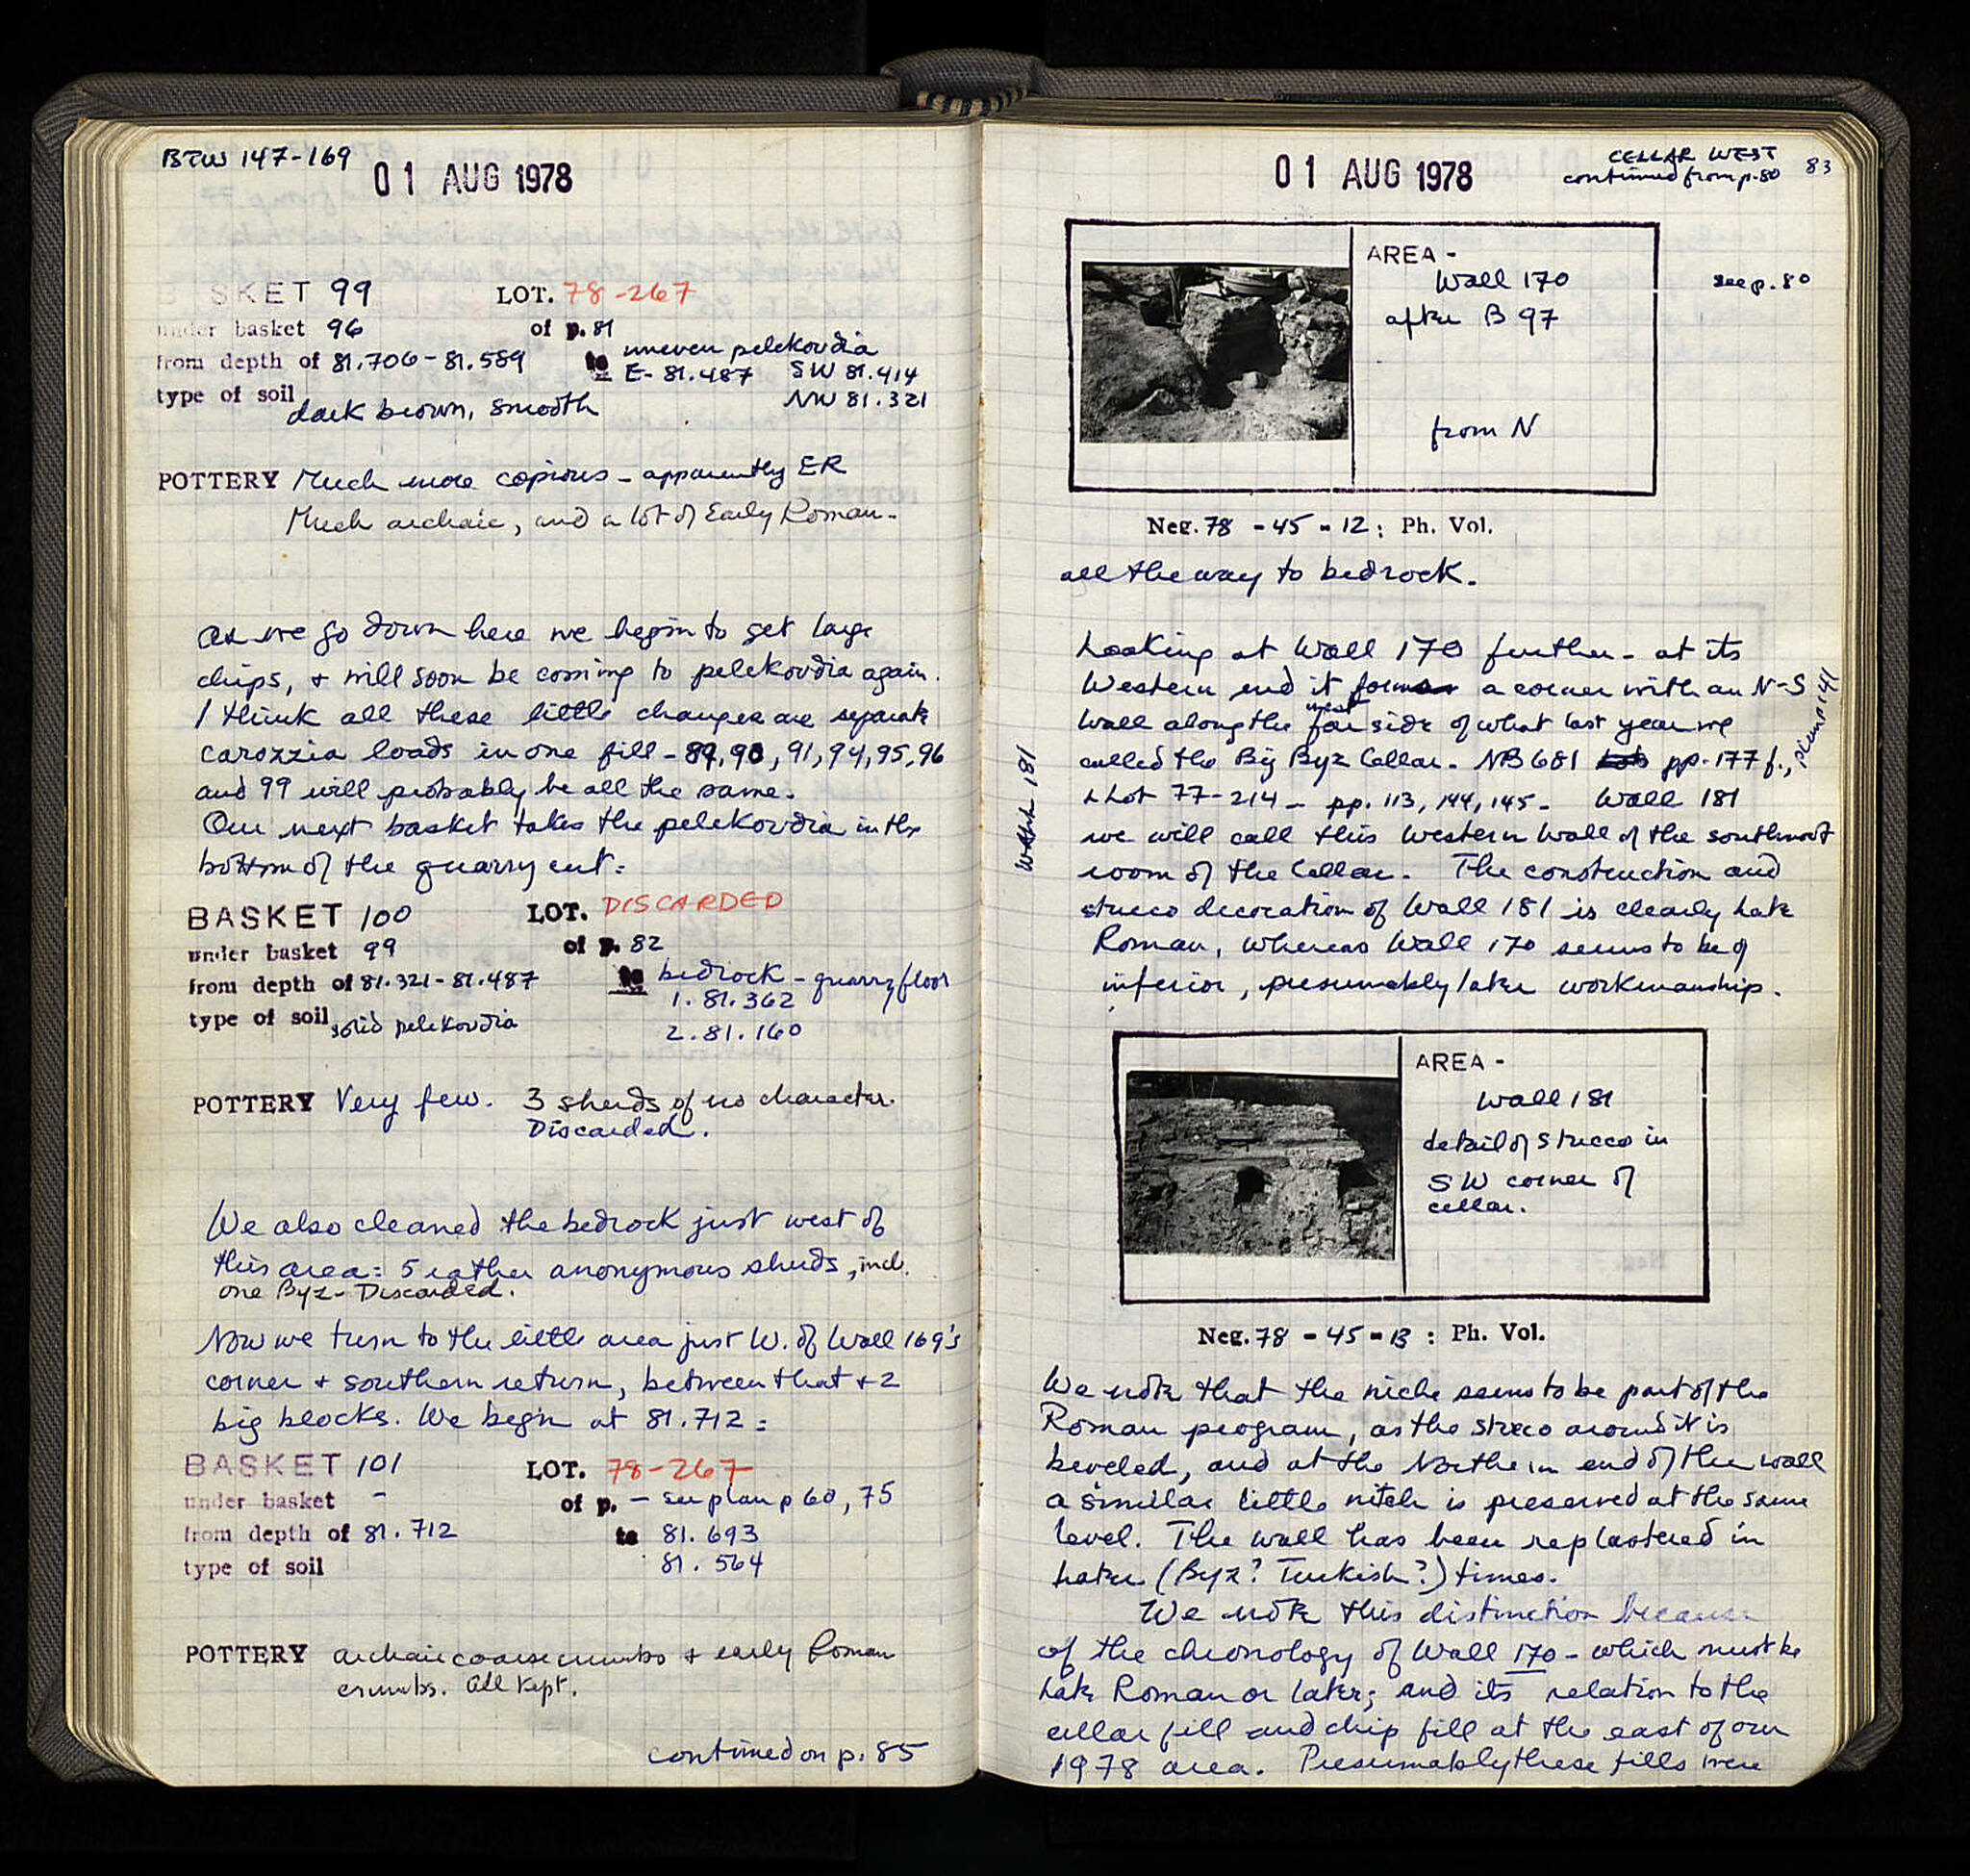 BTW 147-169
01 AUG 1978
BASKET 99 LOT. 78-267
under basket 96 of p. 81
from depth of 81.706-81.589 to uneven pelekovdia
E- 81.487 SW 81.414
type of soil dark brown, smooth NW 81.321
POTTERY Much more copious - apparently ER
Much archaic, and a lot of Early Roman.
As we go down here we begin to get large
chips, & will soon be coming to pelekovdia again.
I think all these little changes are separate
carozzia loads in one fill - 89, 90, 91, 94, 95, 96
and 99 will probably be all the same.
Our next basket takes the pelekovdia in the
bottom of the quarry cut:
BASKET 100 LOT. DISCARDED
under basket 99 of p. 82
from depth of 81.321-81.487 to bedrock - quarry floor
1. 81.362
type of soil solid pelekovdia
2. 81.160
POTTERY Very few. 3 sherds of no character.
Discarded.
We also cleaned the bedrock just west of
this area: 5 rather anonymous sherds, incl.
one Byz - Discarded.
Now we turn to the little area just W. of Wall 169's
corner & southern return, between that & 2
big blocks. We begin at 81.712:
BASKET 101 LOT. 78-267
under basket - of p. - see plan p 60, 75
from depth of 81.712 to 81.693
81.564
type of soil
POTTERY archaic coarse crumbs & early Roman
crumbs. All kept.
continued on p. 85
01 AUG 1978
CELLAR WEST 83
continued from p. 80
AREA -
Wall 170
after B 97
from N
see p. 80
Neg. 78 - 45 - 12: Ph. Vol.
all the way to bedrock.
Looking at Wall 170 further - at its
Western end it forms a corner with an N-S
wall along the far west side of what last year we
called the Big Byz Cellar. NB 681 pp. 177 f., plan p 141
& Lot 77-214 - pp. 113, 144, 145. Wall 181
Wall 181
we will call this Western Wall of the southmost
room of the Cellar. The construction and
stucco decoration of Wall 181 is clearly Late
Roman, whereas Wall 170 seems to be of
inferior, presumably later workmanship.
AREA -
Wall 181
detail of stucco in
SW corner of
cellar.
Neg. 78 - 45 - 13 : Ph. Vol.
We note that the niche seems to be part of the
Roman program, as the stucco around it is
beveled, and at the Northern end of the wall
a similar little nitch is preserved at the same
level. The wall has been replastered in
later (Byz? Turkish?) times.
We note this distinction because
of the chronology of Wall 170 - which must be
Late Roman or later; and its relation to the
cellar fill and chip fill at the east of our
1978 area. Presumably these fills were